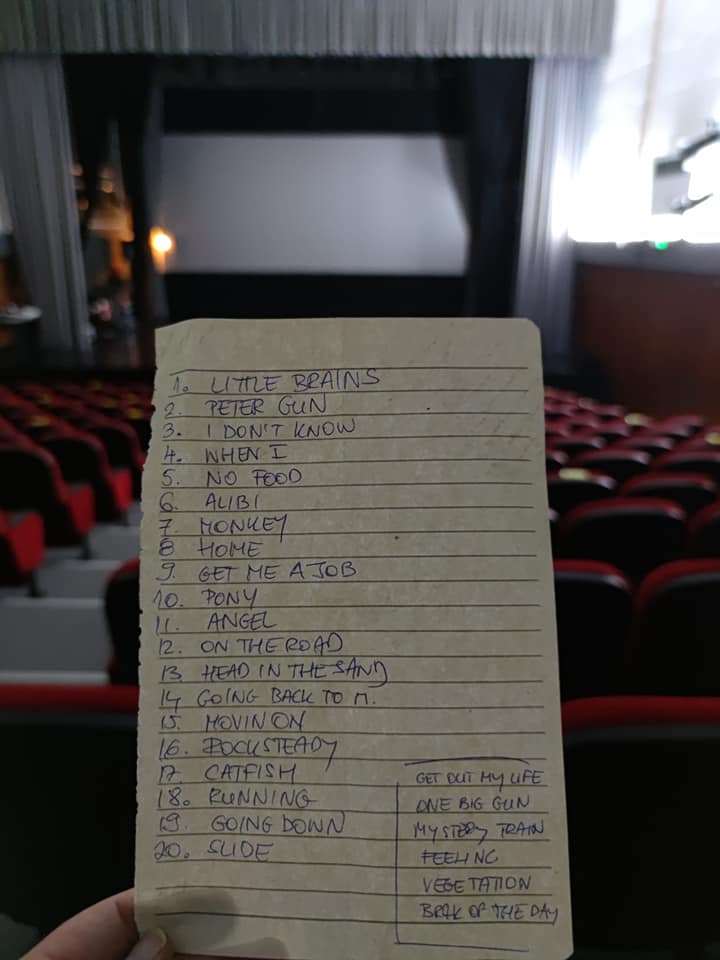 1. LITTLE BRAINS
2. PETER GUN
3. I DON'T KNOW
4. WHEN I
5. NO FOOD
6. ALIBI
7. MONKEY
8. HOME
9. GET ME A JOB
10. PONY
11. ANGEL
12. ON THE ROAD
13. HEAD IN THE SAND
14. GOING BACK TO M.
15. MOVIN ON
16. ROCKSTEADY
17. CATFISH
18. RUNNING
19. GOING DOWN
20. SLIDE
GET OUT MY LIFE
ONE BIG GUN
MYSTERY TRAIN
FEELING
VEGETATION
BRAK OF THE DAY